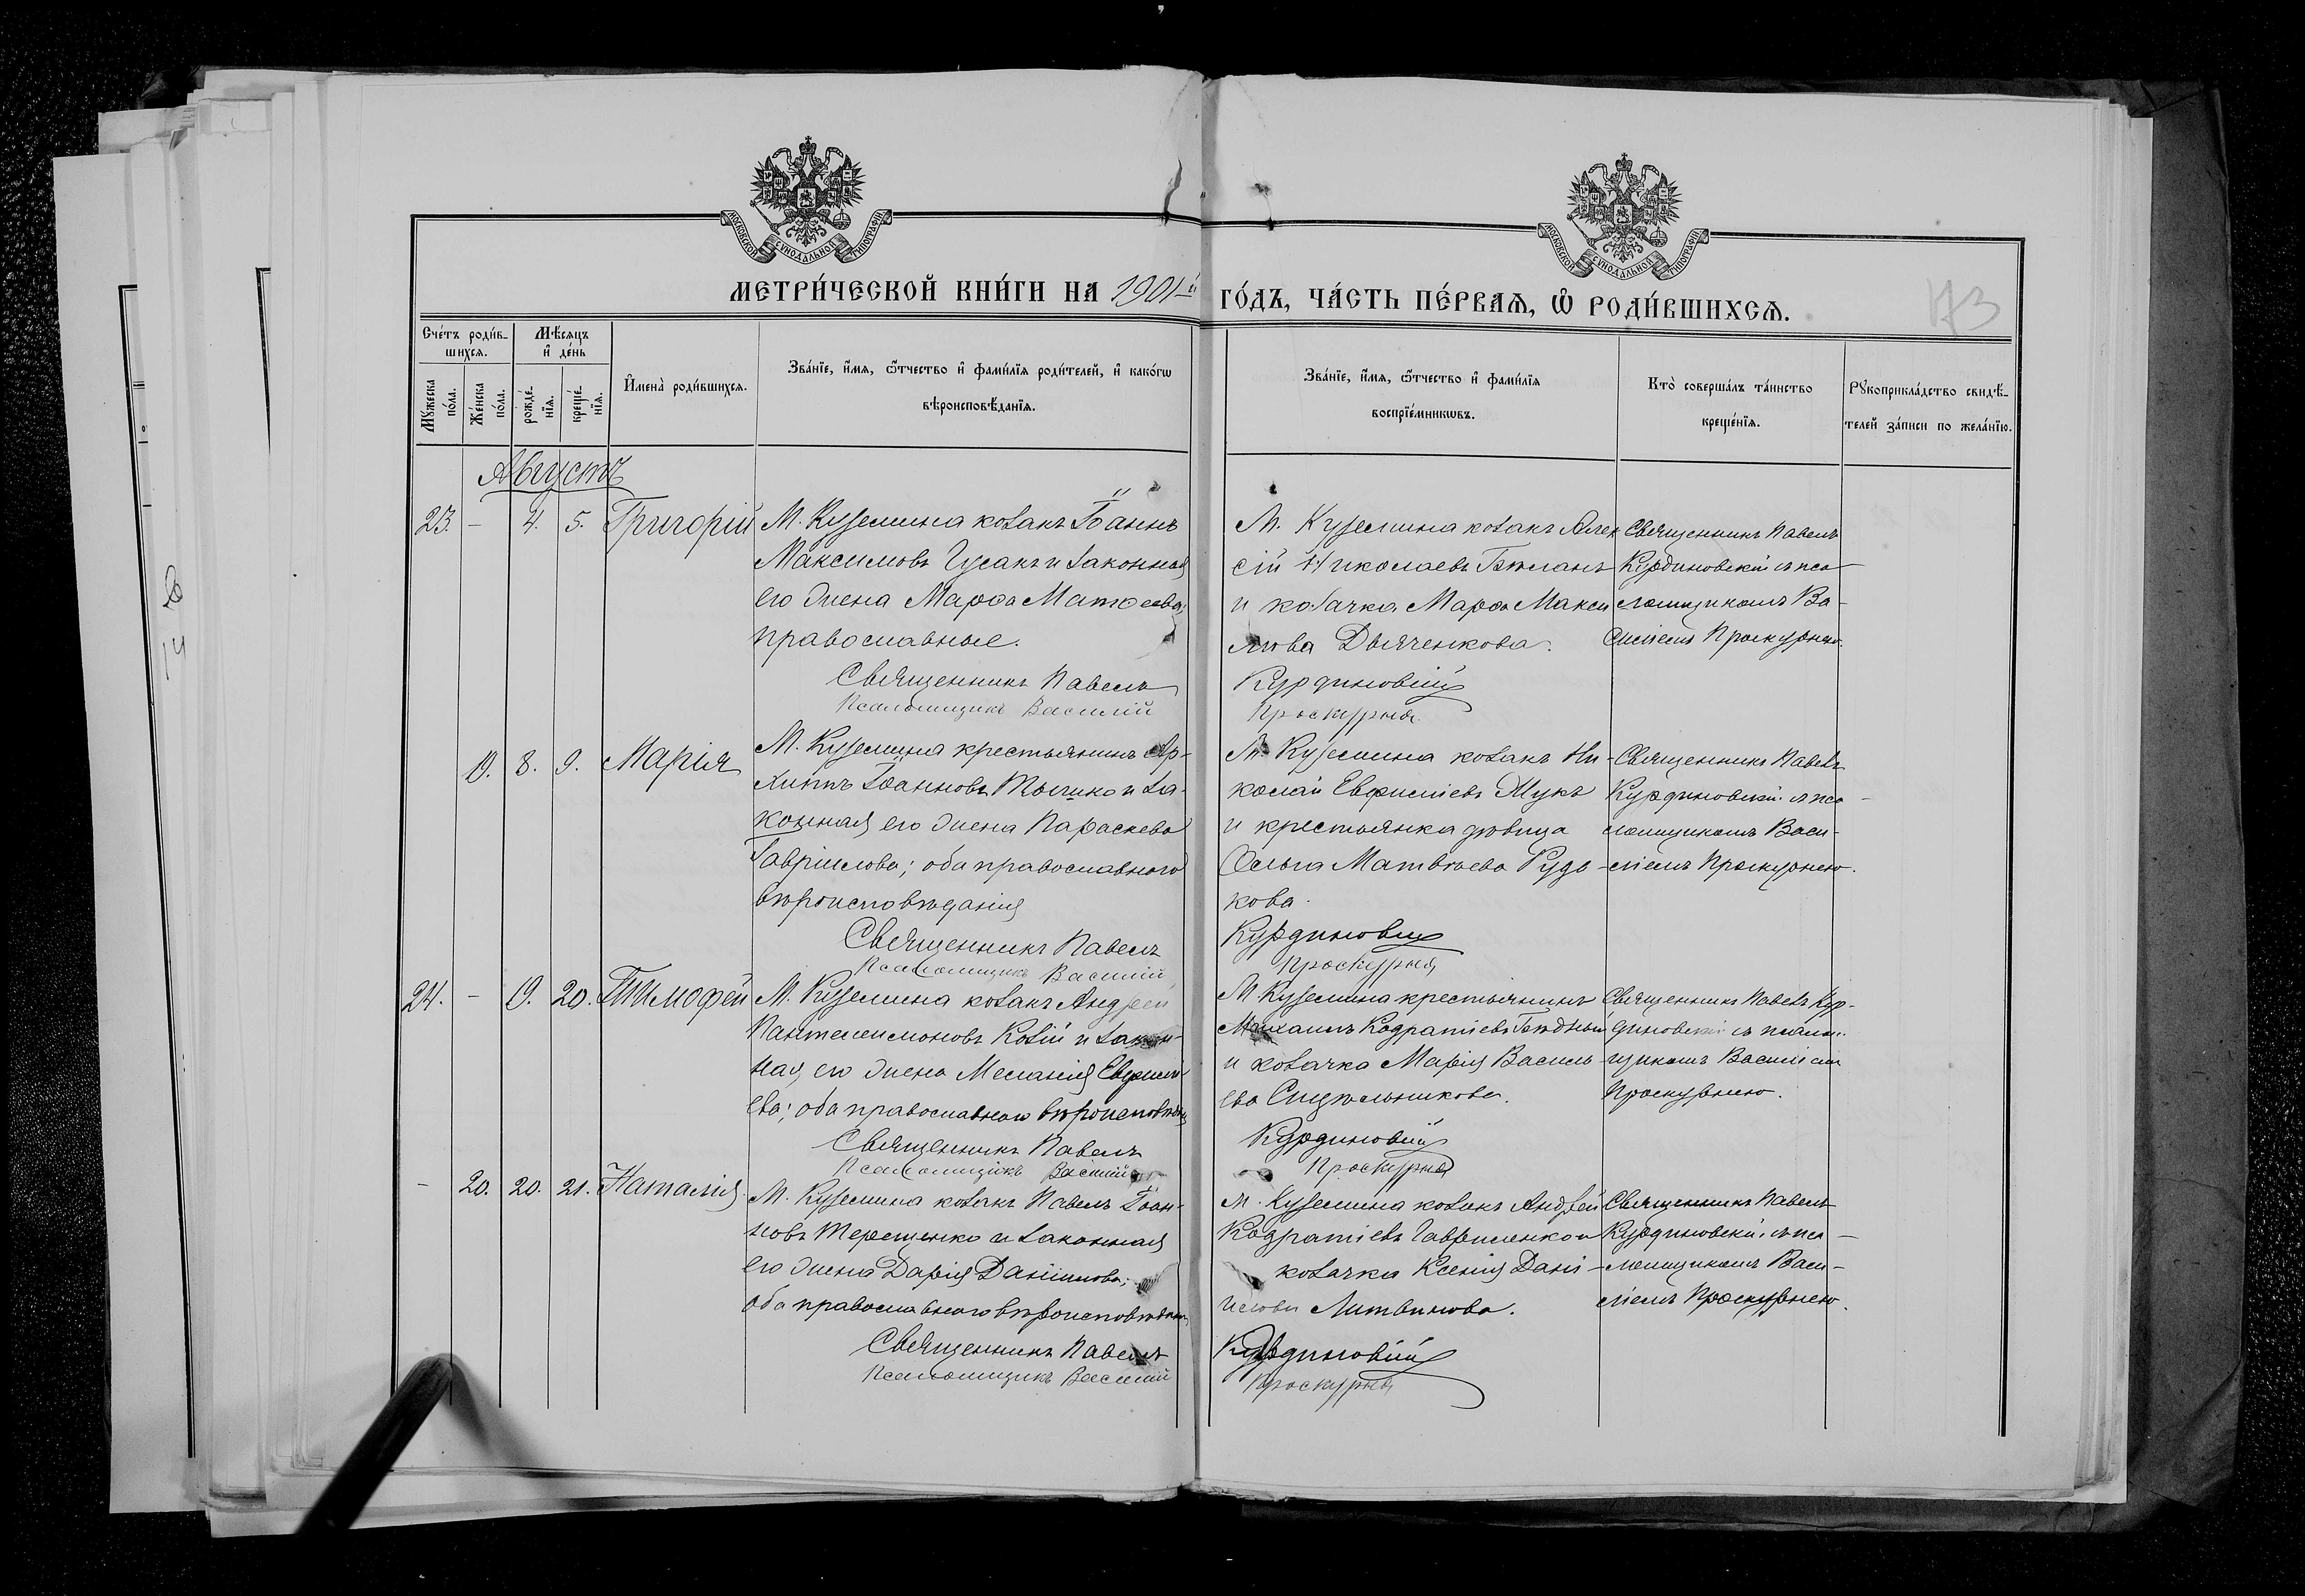 МОСКОВСКОЙ СѴНОДАЛЬНОЙ ТИПОГРАФІИ
МОСКОВСКОЙ СѴНОДАЛЬНОЙ ТИПОГРАФІИ
МЕТРИ́ЧЕСКОЙ КНИ́ГИ НА 1901й ГО́ДЪ, ЧА́СТЬ ПЕ́РВАѦ, Ѽ РОДИ́ВШИХСѦ.
173
Сче́тъ роди́в-
шихсѧ.
Мѣсѧцъ
и҆ де́нь
Мꙋ́жеска
по́ла.
Же́нска
по́ла.
рожде́-
нїѧ.
креще́-
нїѧ.
И҆мена̀ роди́вшихсѧ.
Зва́нїе, и҆́мѧ, ѻ҆́тчество и҆ фами́лїѧ роди́телей, и҆ како́гѡ
вѣроисповѣ́данїѧ.
Зва́нїе, и҆́мѧ, ѻ҆́тчество и҆ фами́лїѧ
воспрїе́мникѡвъ.
Кто̀ соверша́лъ та́инство
креще́нїѧ.
Рꙋкоприкла́дство свидѣ́-
телей за́писи по жела́нїю.
Августъ
23. - 4. 5. Григорій
М. Куземина козакъ Іоаннъ
Максимовъ Гусакъ и законная
его жена Марѳа Матѳеева;
православные.
Священникъ Павелъ
Псаломщикъ Василій
М. Куземина козакъ Алек
сій Николаевъ
и козачка Марѳа Макси
мова Дьяченкова.
Курдиновскій
Проскурня.
Священникъ Павелъ
Курдиновскій съ пса-
ломщикомъ Ва-
силіемъ Проскурнею.
19. 8. 9. Марія
М. Куземина крестьянинъ Ар-
хиппъ Іоанновъ Тычико и за-
конная его жена Параскева
Гавріилова; оба православнаго
вѣроисповѣданія
Священникъ Павелъ
Псаломщикъ Василій
М. Куземина козакъ Ни-
колай Евфиміевъ Жукъ
и крестьянка дѣвица
Ольга Матвѣева Рудь-
кова.
Курдиновскій
Проскурня
Священникъ Павелъ
Курдиновскій съ пса-
ломщикомъ Васи-
ліемъ Проскурнею.
24. - 19. 20. Тимофей
М. Куземина козакъ Андрей
Пантелеимоновъ Козій и закон-
ная его жена Меланія Евфимі
ева; оба православнаго вѣроисповѣд
Священникъ Павелъ
Псаломщикъ Василій
М. Куземина крестьянинъ
Михаилъ Кодратіевъ
и козачка Марія Василь-
ева
Курдиновскій
Проскурня
Священникъ Павелъ Кур-
диновскій съ псалом-
щикомъ Василіемъ
Проскурнею.
- 20. 20. 21. Наталія.
М. Куземина козакъ Павелъ Іоан-
новъ Терещенко и законная
его жена Дарія Даніилова;
оба православнаго вѣроисповѣданія
Священникъ Павелъ
Псаломщикъ Василій
М. Куземина козакъ Андрей
Кодратіевъ Гавриленко и
козачка Ксенія Дані-
илова Литвинова.
Курдиновскій
Проскурня
Священникъ Павелъ
Курдиновскій съ пса-
ломщикомъ Васи-
ліемъ Проскурнею.